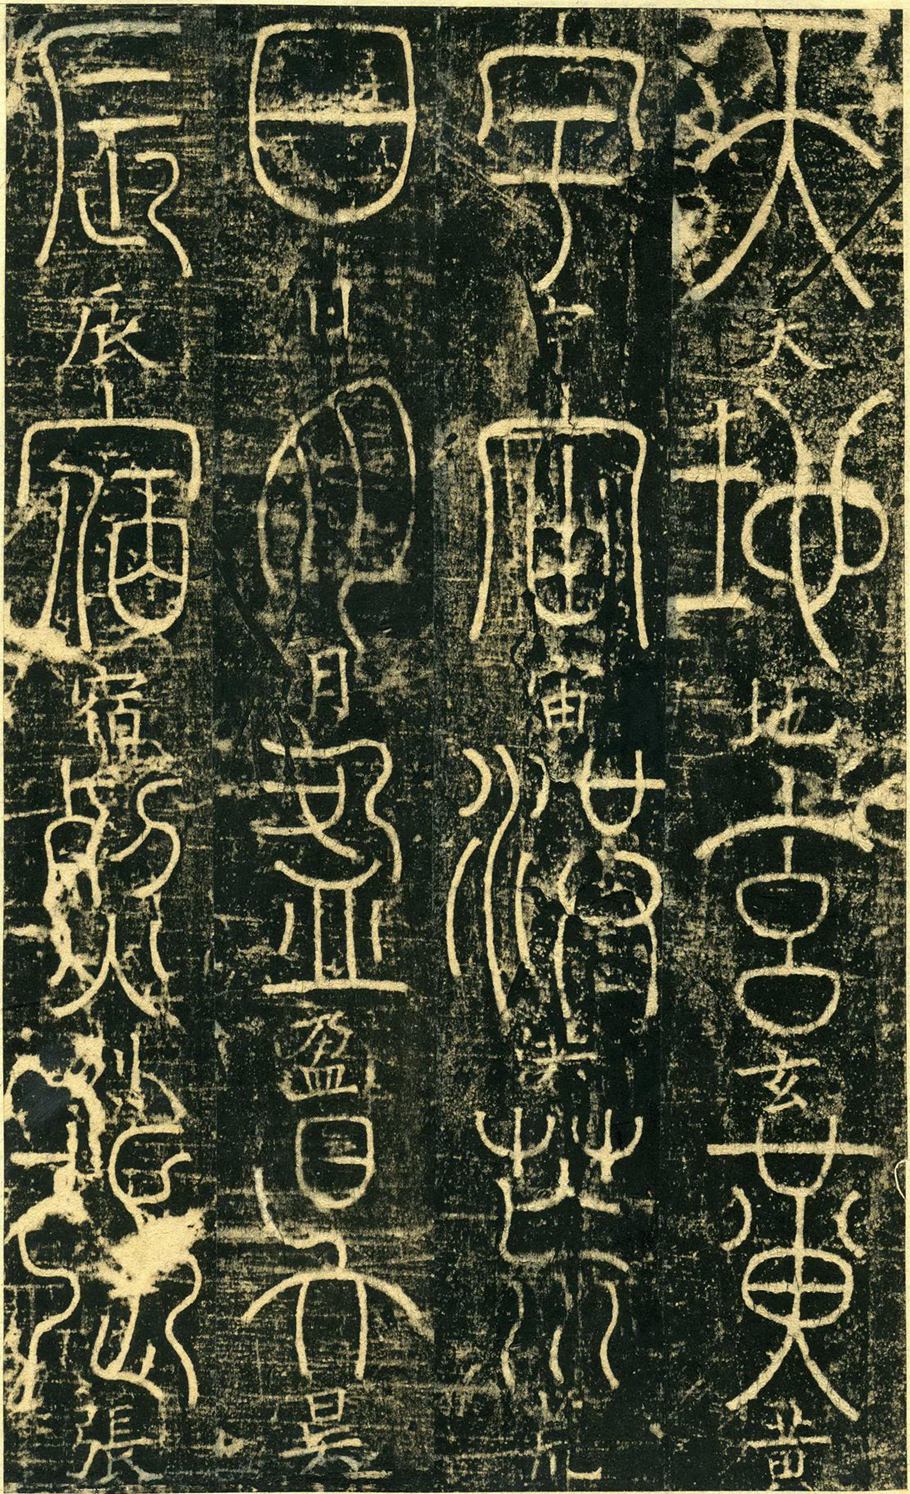 天天地地玄玄黃黃
宇宇宙宙洪洪荒荒
日日月月盈盈昃昃
辰辰宿宿列列張張